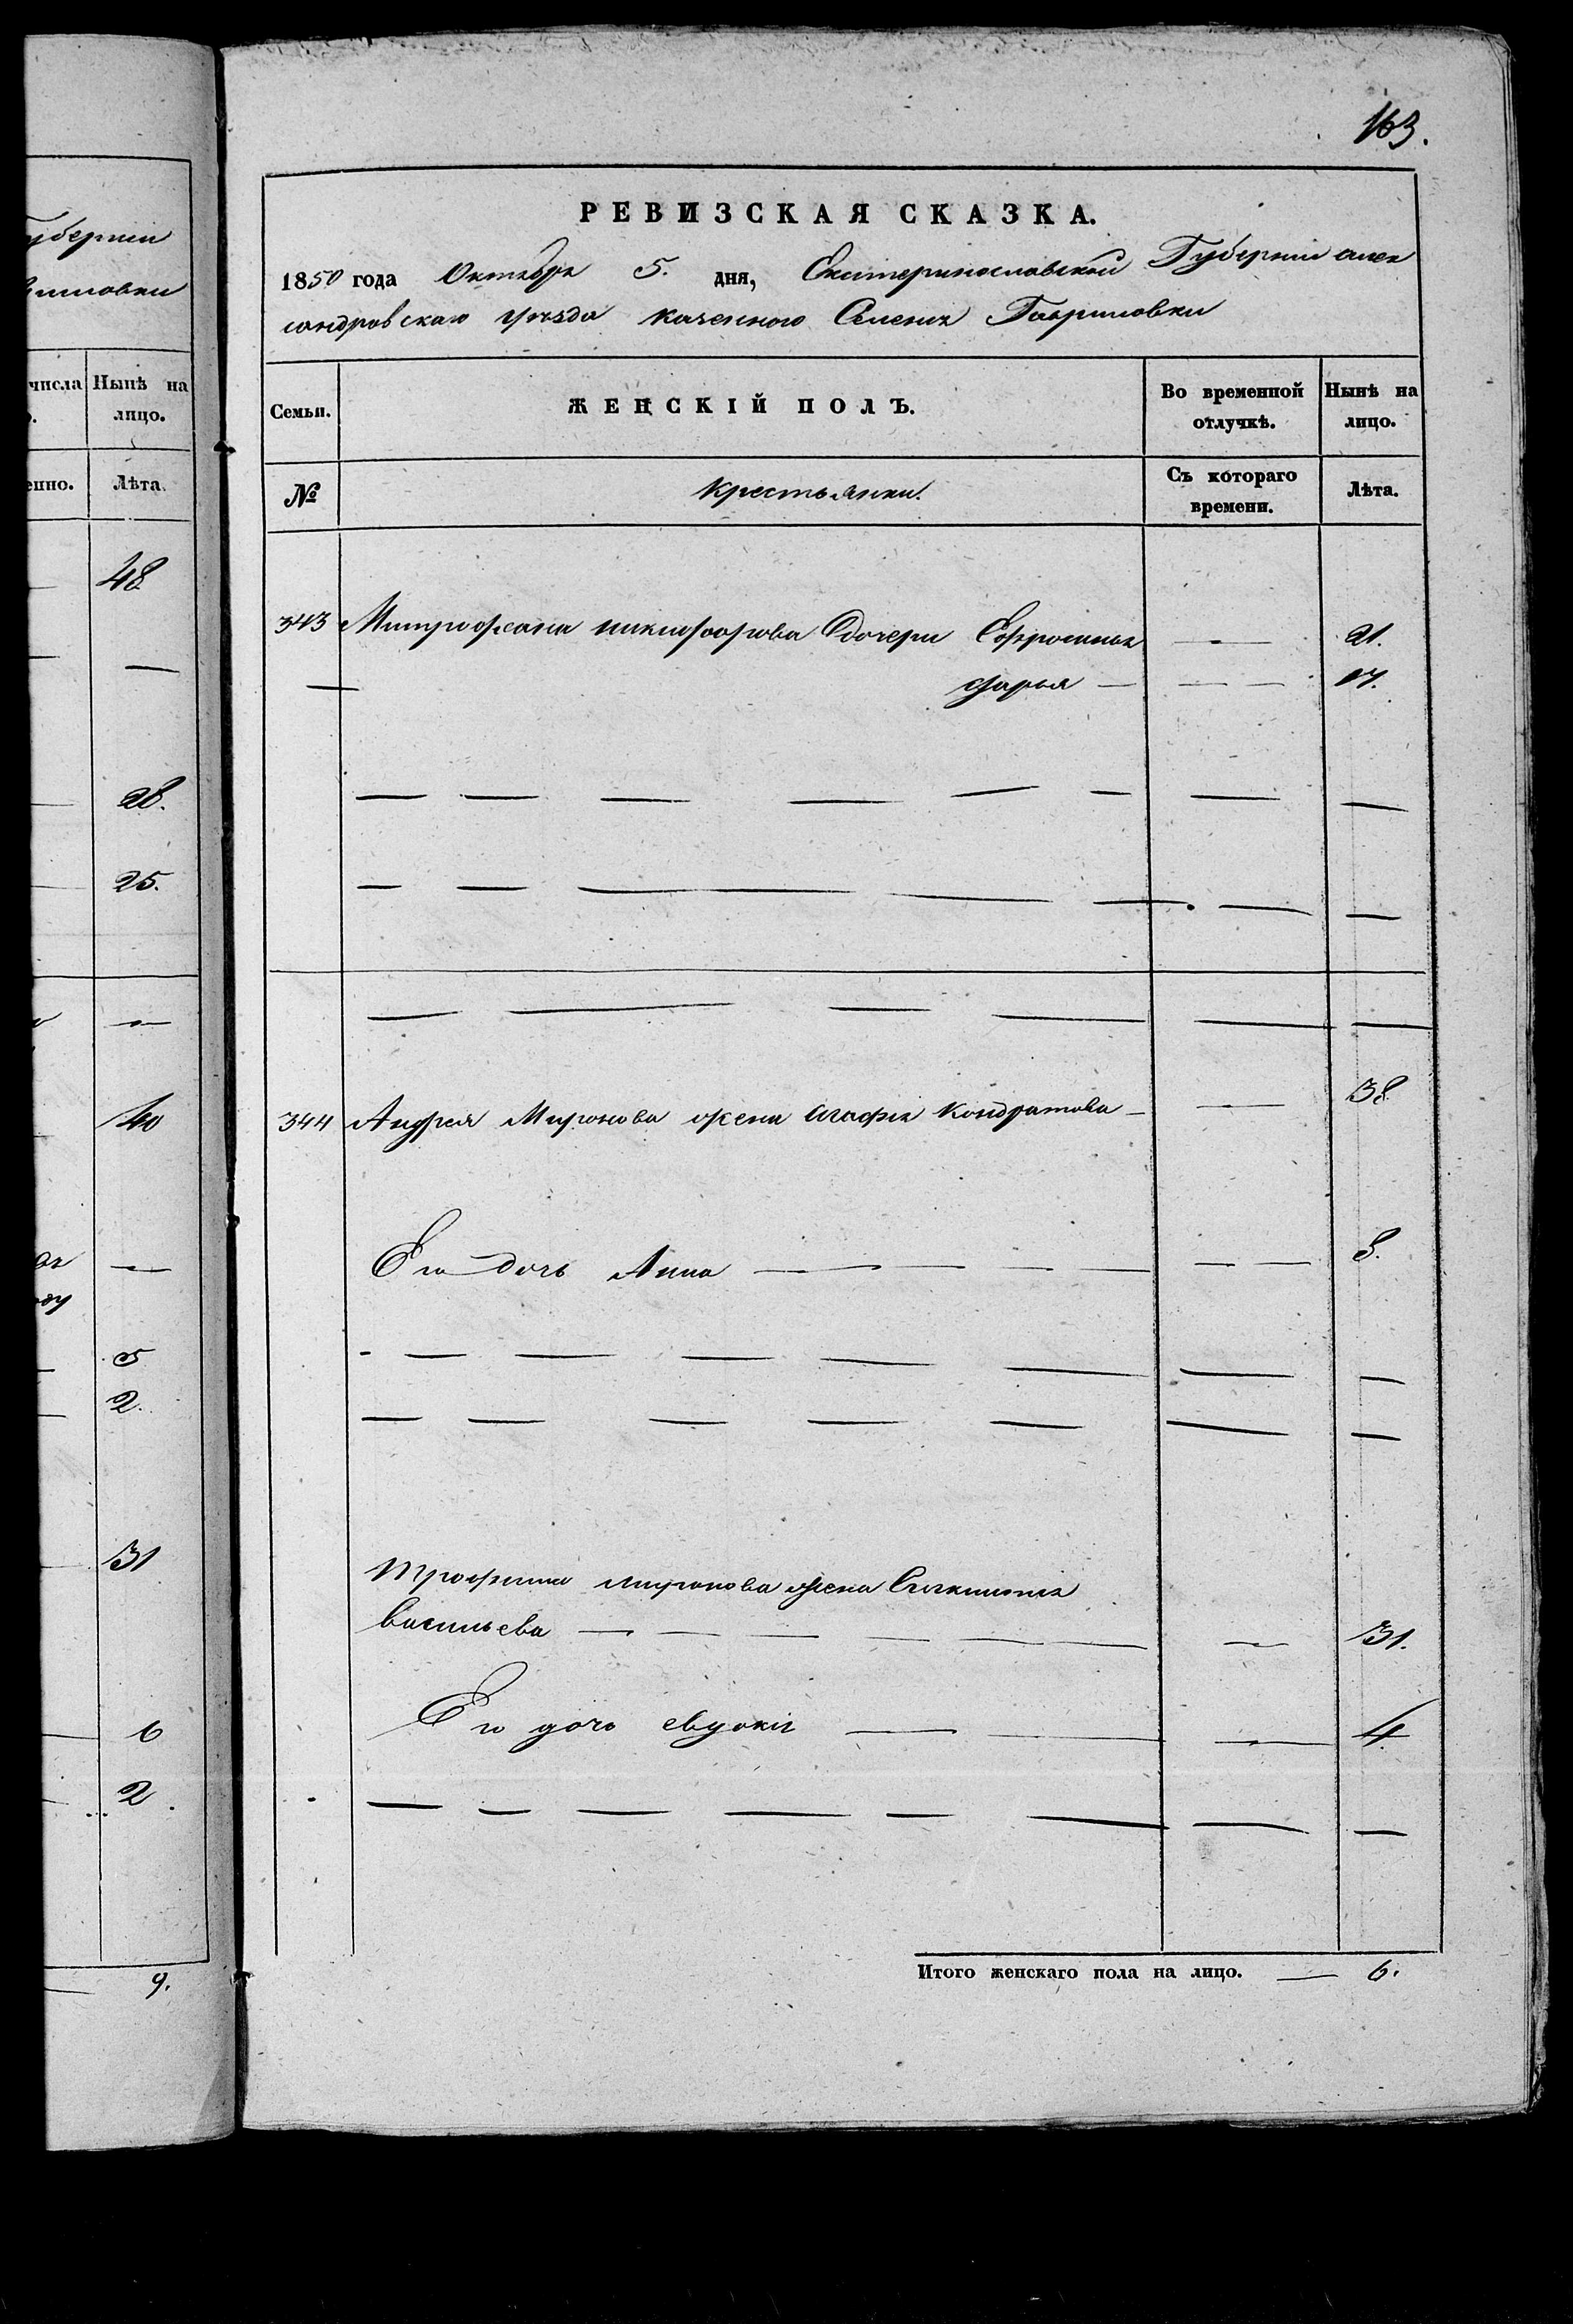 163.
РЕВИЗСКАЯ СКАЗКА.
1850 года Октября 5. дня, Екатеринославской Губернии Алек
сандровскаго уезда казенного Селения Гавриловки
Семьи.
ЖЕНСКІЙ ПОЛЪ.
Во временной отлучкѣ.
Нынѣ на лицо.
№
Крестьянки.
Съ котораго времени.
Лѣта.
343 Митрофана никифорова дочери Ефросиния — 21.
дарья — 17.
344 Андрея Миронова жена агафия Кондратова — 38
Его дочь Анна — 8.
Трофима миронова жена
васильева — 31.
Его дочь евдокия — 4
Итого женскаго пола на лицо. — 6.
губернии
числа
Нынѣ на лицо.
Лѣта.
48
28.
25.
40
5
2.
31
6
2.
9.